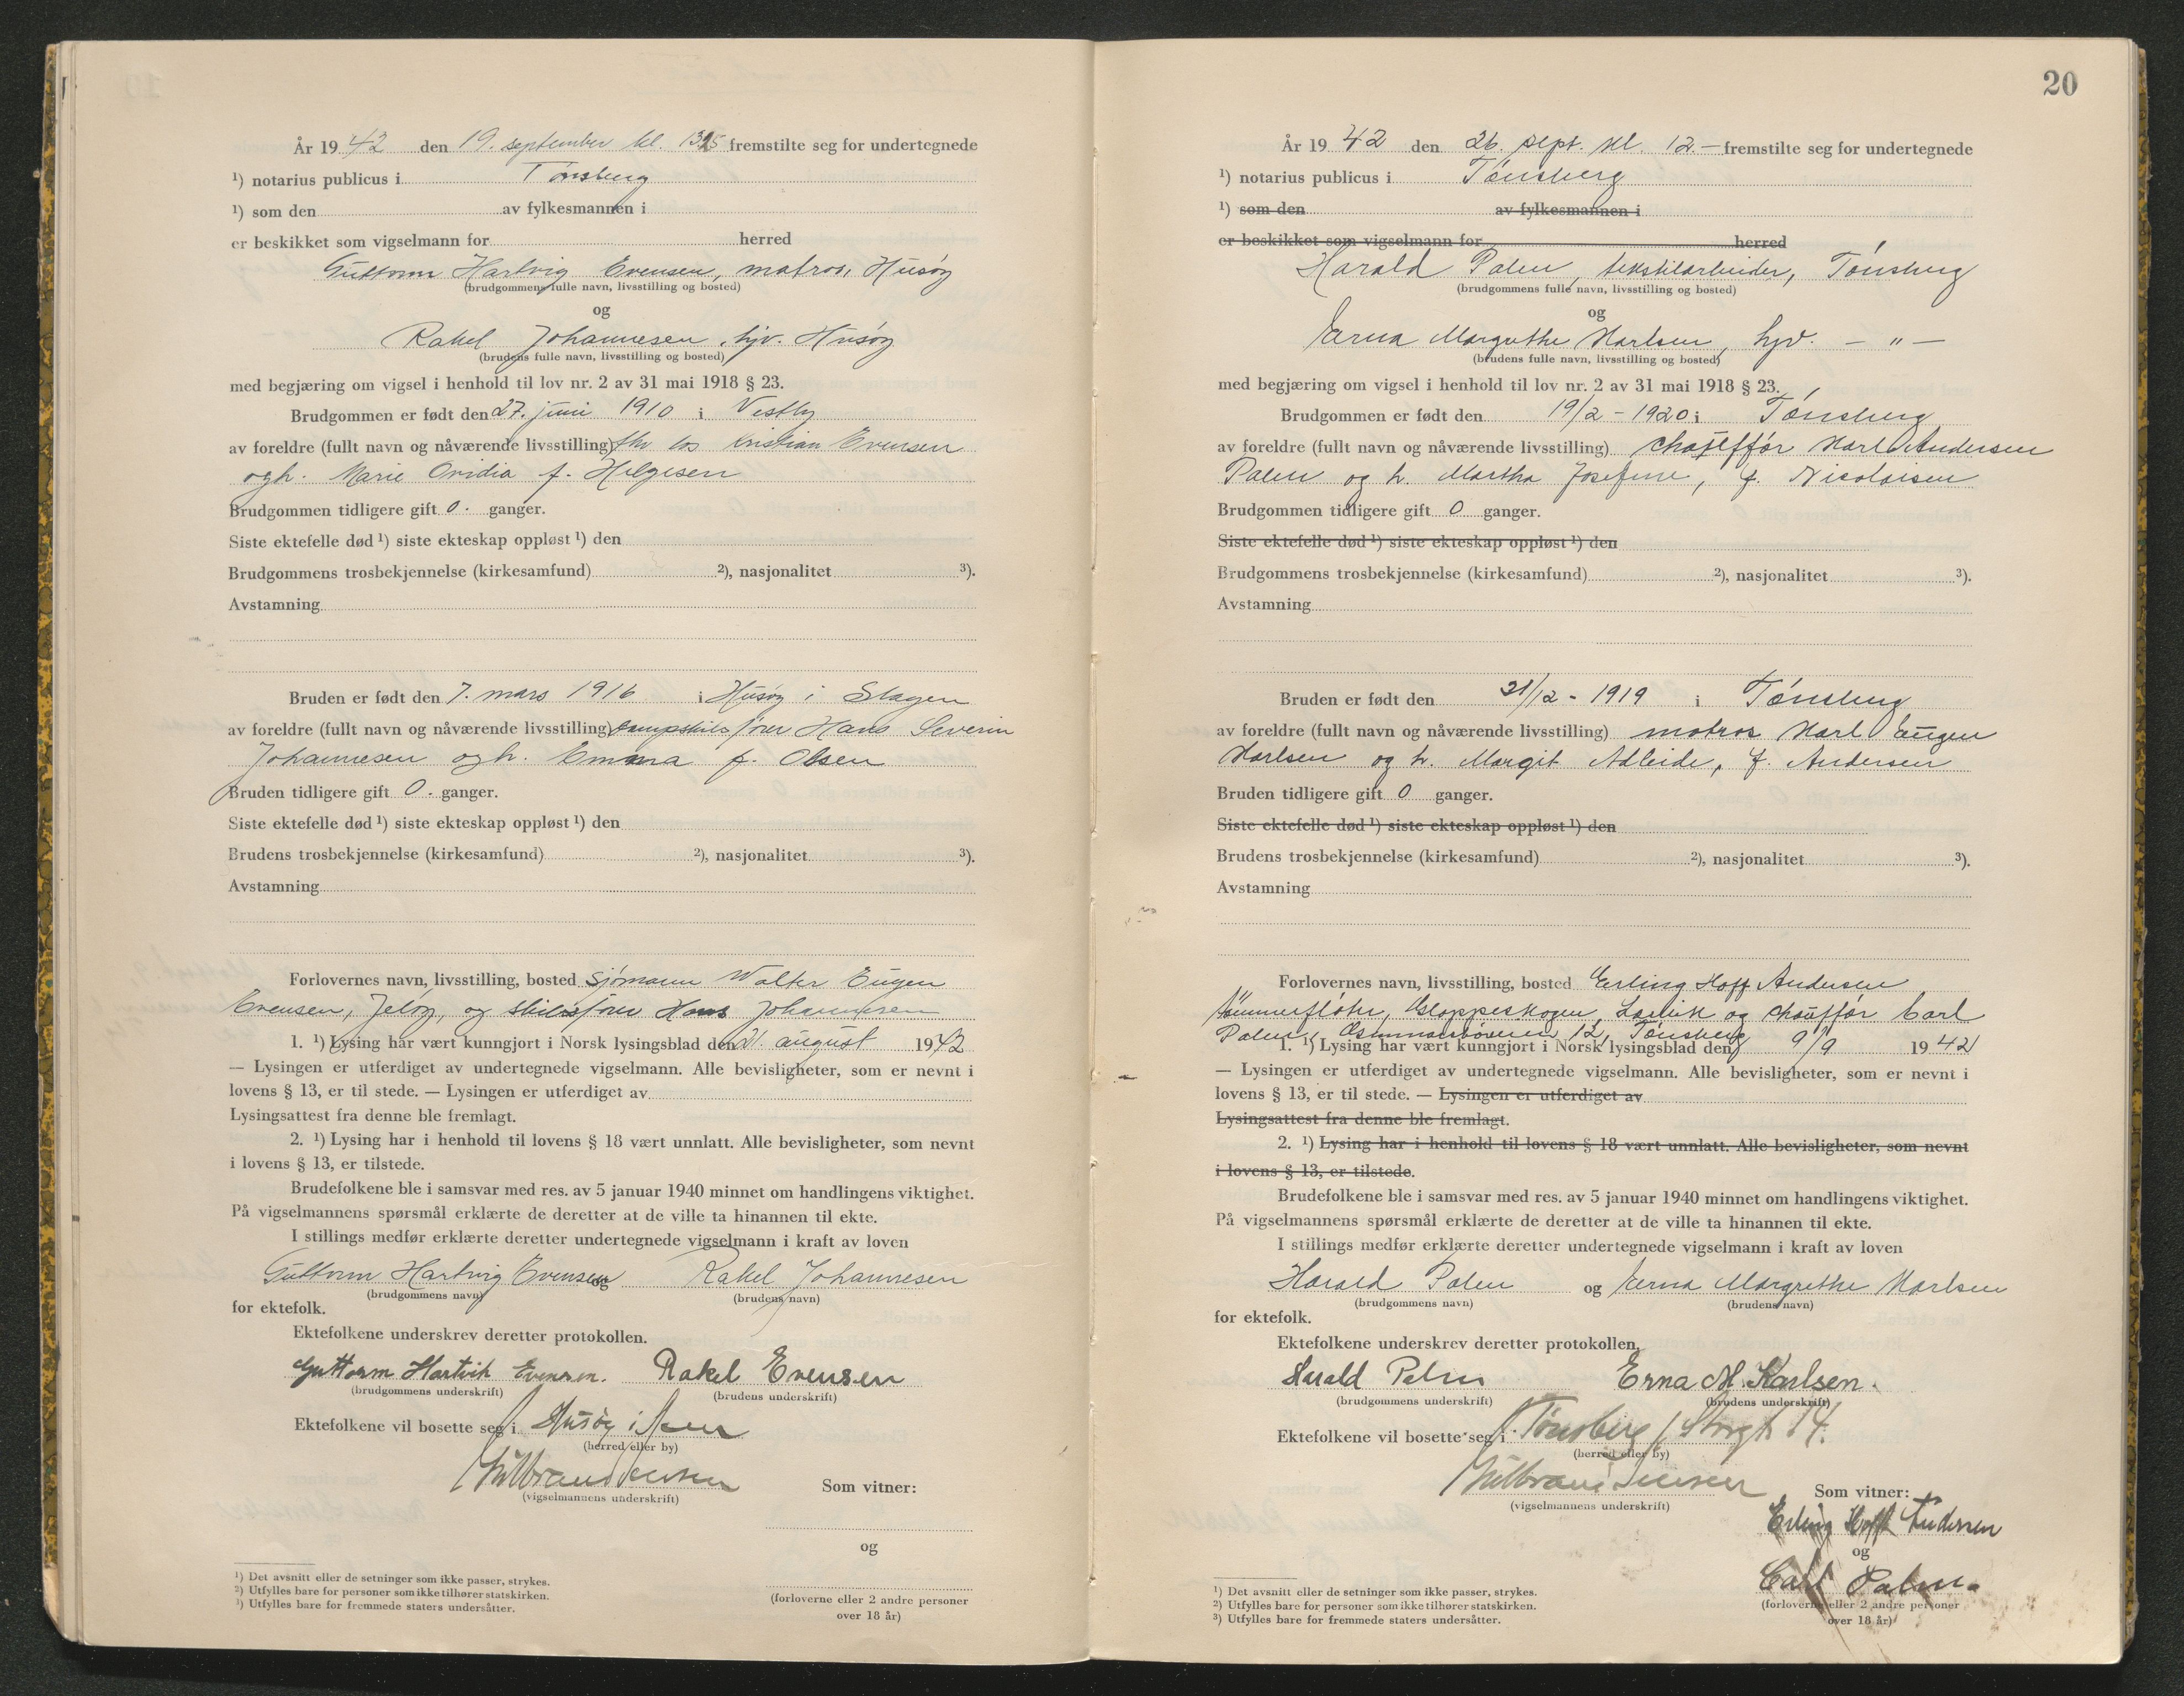 År 1942 den 19. september kl. fremstilte seg for undertegnede
¹) notarius publicus i Tønsberg
¹) som den av fylkesmannen i
er beskikket som vigselmann for herred
Guttorm Hartvig Evensen, matros, Husøy
(brudgommens fulle navn, livsstilling og bosted)
og
Rakel Johannesen, hjv. Husøy
(brudens fulle navn, livsstilling og bosted)
med begjæring om vigsel i henhold til lov nr. 2 av 31 mai 1918 § 23.
Brudgommen er født den 27. juni 1910 i Vestby
av foreldre (fullt navn og nåværende livsstilling) fhv. los Kristian Evensen
og h. Marie Ovidia f. Helgesen
Brudgommen tidligere gift 0. ganger.
Siste ektefelle død ¹) siste ekteskap oppløst ¹) den
Brudgommens trosbekjennelse (kirkesamfund) ²), nasjonalitet ³).
Avstamning
Bruden er født den 7. mars 1916 i Husøy i Slagen
av foreldre (fullt navn og nåværende livsstilling) fører Hans Severin
Johannesen og h. Emma f. Olsen
Bruden tidligere gift 0. ganger.
Siste ektefelle død ¹) siste ekteskap oppløst ¹) den
Brudens trosbekjennelse (kirkesamfund) ²), nasjonalitet ³).
Avstamning
Forlovernes navn, livsstilling, bosted sjømann Walter Eugen
Evensen, Jeløy, og skibsfører Hans Johannesen
1. ¹) Lysing har vært kunngjort i Norsk lysingsblad den 21. august 1942
— Lysingen er utferdiget av undertegnede vigselmann. Alle bevisligheter, som er nevnt i
lovens § 13, er til stede. — Lysingen er utferdiget av
Lysingsattest fra denne ble fremlagt.
2. ¹) Lysing har i henhold til lovens § 18 vært unnlatt. Alle bevisligheter, som nevnt
i lovens § 13, er tilstede.
Brudefolkene ble i samsvar med res. av 5 januar 1940 minnet om handlingens viktighet.
På vigselmannens spørsmål erklærte de deretter at de ville ta hinannen til ekte.
I stillings medfør erklærte deretter undertegnede vigselmann i kraft av loven
Guttorm Hartvig Evensen og Rakel Johannesen
(brudgommens navn) (brudens navn)
for ektefolk.
Ektefolkene underskrev deretter protokollen.
Guttorm Hartvik Evensen. Rakel Evensen
(brudgommens underskrift) (brudens underskrift)
Ektefolkene vil bosette seg i Husøy i
(herred eller by)
(vigselmannens underskrift)
Som vitner:
og
(forloverne eller 2 andre personer
over 18 år)
¹) Det avsnitt eller de setninger som ikke passer, strykes.
²) Utfylles bare for personer som ikke tilhører statskirken.
³) Utfylles bare for fremmede staters undersåtter.
20
År 1942 den 26. sept. kl. 12.— fremstilte seg for undertegnede
¹) notarius publicus i Tønsberg
¹) som den av fylkesmannen i
er beskikket som vigselmann for herred
Harald Palm, tekstilarbeider, Tønsberg
(brudgommens fulle navn, livsstilling og bosted)
og
Erna Margrethe Karlsen, hjv. — " —
(brudens fulle navn, livsstilling og bosted)
med begjæring om vigsel i henhold til lov nr. 2 av 31 mai 1918 § 23.
Brudgommen er født den 19/2 - 1920 i Tønsberg
av foreldre (fullt navn og nåværende livsstilling) chauffør Karl Andersen
Palm og h. Martha Josefine, f. Nicolaisen
Brudgommen tidligere gift 0 ganger.
Siste ektefelle død ¹) siste ekteskap oppløst ¹) den
Brudgommens trosbekjennelse (kirkesamfund) ²), nasjonalitet ³).
Avstamning
Bruden er født den 31/12 - 1919 i Tønsberg
av foreldre (fullt navn og nåværende livsstilling) matros Karl Eugen
Karlsen og h. Margit Adleide, f. Andersen
Bruden tidligere gift 0 ganger.
Siste ektefelle død ¹) siste ekteskap oppløst ¹) den
Brudens trosbekjennelse (kirkesamfund) ²), nasjonalitet ³).
Avstamning
Forlovernes navn, livsstilling, bosted Erling Hoff Andersen
tømmerfløter, Gloppeskogen, Larvik og chauffør Carl
Palm, 12, Tønsberg
1. ¹) Lysing har vært kunngjort i Norsk lysingsblad den 9/9 1942
— Lysingen er utferdiget av undertegnede vigselmann. Alle bevisligheter, som er nevnt i
lovens § 13, er til stede. — Lysingen er utferdiget av
Lysingsattest fra denne ble fremlagt.
2. ¹) Lysing har i henhold til lovens § 18 vært unnlatt. Alle bevisligheter, som nevnt
i lovens § 13, er tilstede.
Brudefolkene ble i samsvar med res. av 5 januar 1940 minnet om handlingens viktighet.
På vigselmannens spørsmål erklærte de deretter at de ville ta hinannen til ekte.
I stillings medfør erklærte deretter undertegnede vigselmann i kraft av loven
Harald Palm og Erna Margrethe Karlsen
(brudgommens navn) (brudens navn)
for ektefolk.
Ektefolkene underskrev deretter protokollen.
Harald Palm Erna M. Karlsen.
(brudgommens underskrift) (brudens underskrift)
Ektefolkene vil bosette seg i Tønsberg, Storgt. 14.
(herred eller by)
(vigselmannens underskrift)
Som vitner:
Erling Hoff Andersen
og
Carl Palm.
(forloverne eller 2 andre personer
over 18 år)
¹) Det avsnitt eller de setninger som ikke passer, strykes.
²) Utfylles bare for personer som ikke tilhører statskirken.
³) Utfylles bare for fremmede staters undersåtter.